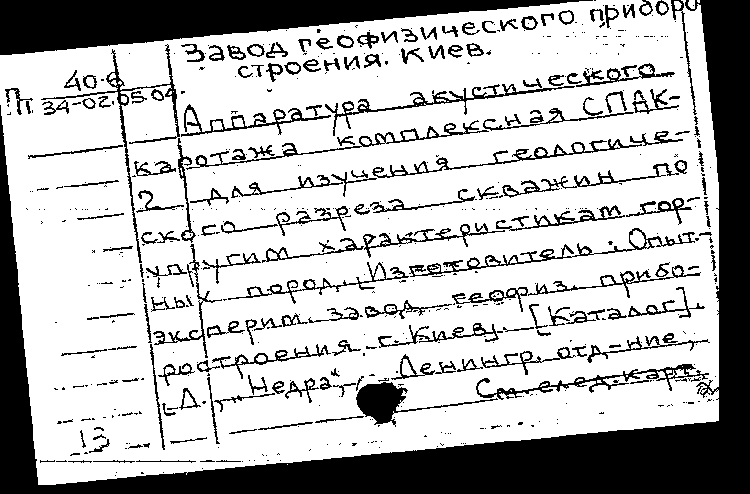 Завод геофизического приборо
строения. Киев.
40-6
Пп 34-02.05.04.
Аппаратура акустического
каротажа комплексная СПАК-
2 для изучения геологиче-
ского разреза скважин по
упругим характеристикам гор-
ных пород. [Изготовитель: Опыт.-
эксперим. завод геофиз. прибо-
ростроения г. Киев]. [Каталог].
[Л., "Недра", Ленингр. отд-ние,
См. след. карт.
13